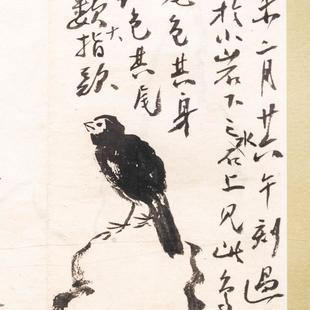 未二月廿六午刻過
於小岩下之水石上見此鳥
尾色其身
色其尾
大
數指款